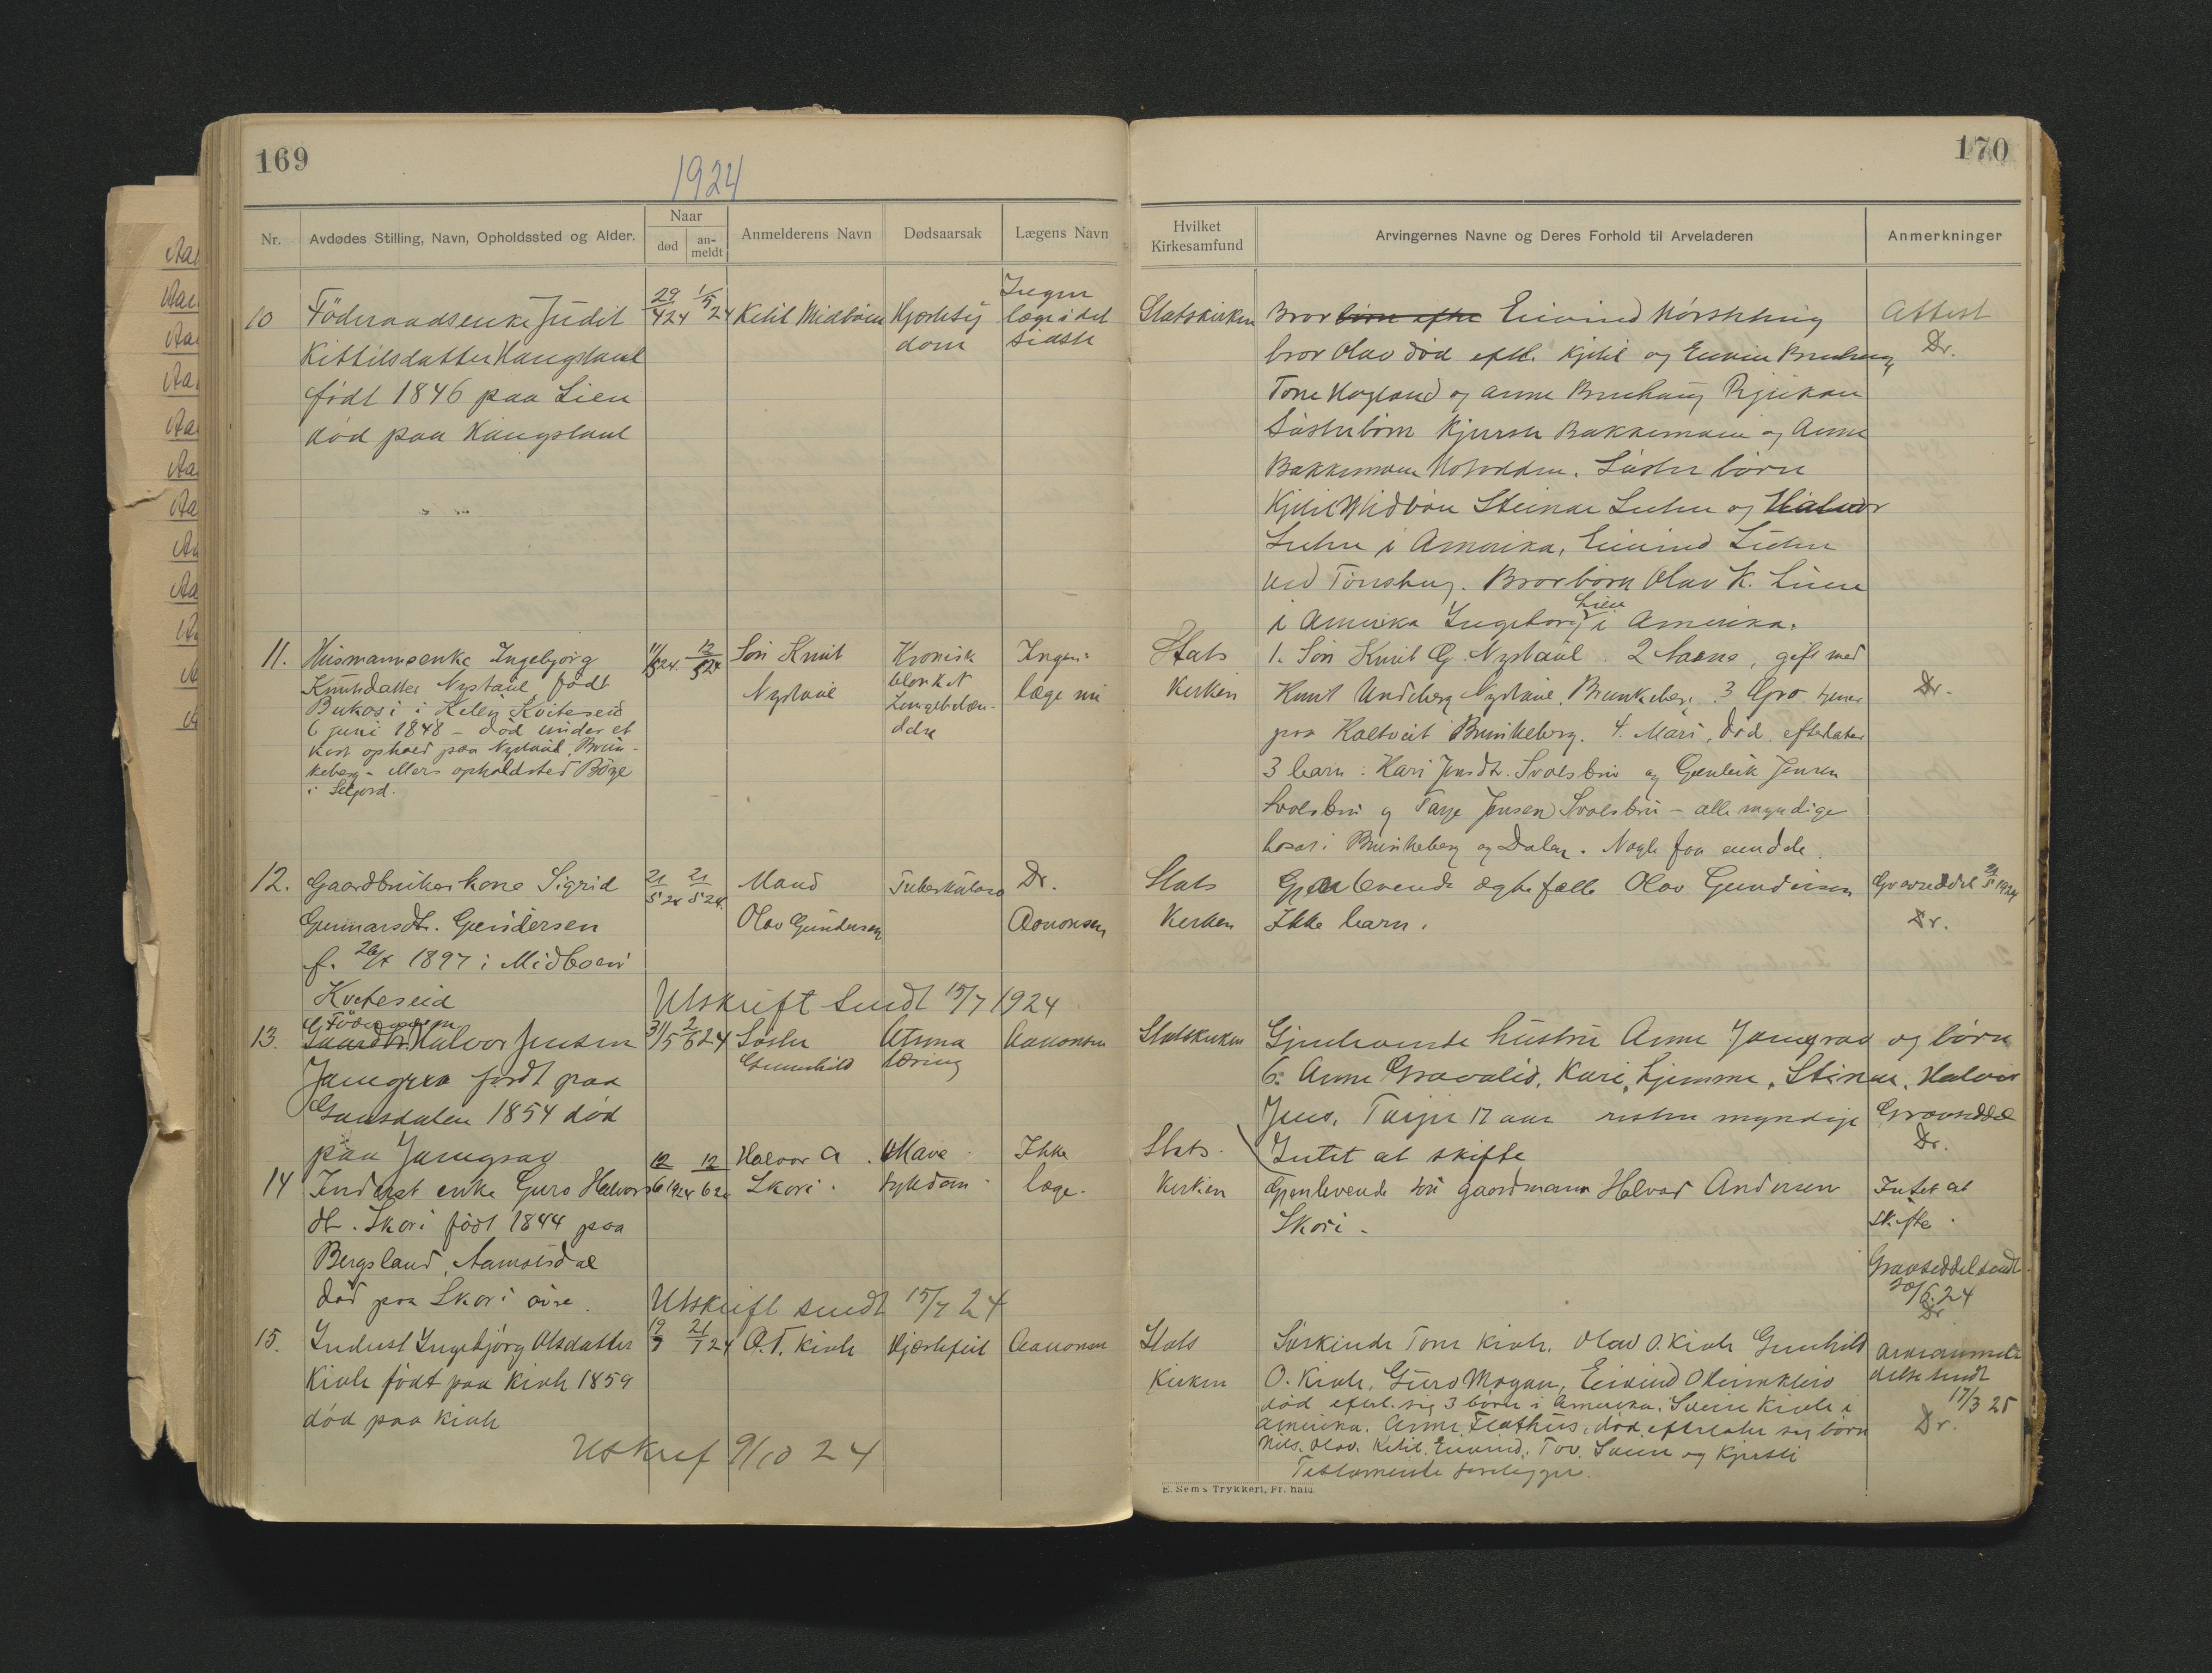 169
1924
Nr.
Avdødes Stilling, Navn, Opholdssted og Alder.
Naar
død
an-
meldt
Anmelderens Navn
Dødsaarsak
Lægens Navn
10
Föderaadsenke Judit
Kittilsdatter Haugstaul
født 1846 paa Lien
død paa Haugstaul
29/4 24
1/5 24
Ketil Midbøen
Hjertesy
dom
Ingen
læge i det
sidste
11.
Husmannsenke Ingebjørg
Knutsdatter Nystaul, født
Bukasi i Kviteseid
6 juni 1848 – død under et
kort ophold paa Nystaul, Brun-
keberg – ellers opholdsted Bøge
i Seljord.
11/5 24.
12/5 24
Søn Knut
Nystaul
Kronisk
Ingen
læge
12.
Gaardbrukerkone Sigrid
Gunnarsdtr. Gundersen
f. 1897 i Midboen
Kviteseid
21/5 24
21/5 24.
Mand
Olav Gundersen
Tuberkulose
Dr.
Aanonsen
Utskrift sendt 15/7 1924
13.
Halvor Jensen
Jamgrav født paa
Gausdalen 1854 død
paa Jamgrav
31/5
2/6 24
Søster
Gunnhild
Atsma
tæring
Aanonsen
14
Inderst enke Guro Halvors
dtr. Skori født 1844 paa
Bergsland, Aamotsdal
død paa Skori øvre.
12/6 1924
12/6 24
Halvor A.
Skori.
Mave
sykdom
Ikke
læge.
Utskrift sendt 15/7 24
15.
Inderst Ingebjørg Olsdatter
Kivle født paa Kivle 1859
død paa Kivle
19/7
21/7 24
O. T. Kivle
Hjertefeil
Aanonsen
Utskrif 9/10 24
170
Hvilket
Kirkesamfund
Arvingernes Navne og Deres Forhold til Arveladeren
Anmerkninger
Statskirken
Bror børn efter Eivind
bror Olav død efterl. Kjetil og
Tone Hogland og Anne Rjukan
Søsterbørn Bakkemoen og Anne
Bakkemoen Notodden. Søster børn
Kjetil Midbøn Steinar og Halvor
i Amerika, Eivind
ved Tønsberg. Brorbørn Olav K. Lien
i Amerika Ingeborg Lien i Amerika.
Attest
Dr.
Stats
Kirken
1. Søn Knut G. Nystaul. 2 Aasne, gift med
Knut Undeberg Nystaul, Brunkeberg. 3 Gro tjener
paa Kaltveit Brunkeberg. 4. Mari, død efterlater
3 barn: Kari Jensdtr. Svalsbru og Gunleik Jensen
Svolsbru og Tarje Jensen Svolsbru – alle myndige
bosat i Brunkeberg og Dalen.
Dr.
Stats
Kirken
Gjenlevende ægtefælle Olav Gundersen
Ikke barn.
Gravseddel 21/5 1924
Dr.
Statskirken
Gjenlevende hustru Anne Jamgrav og børn
6. Anne Gravalid, Kari, Hjemme, Steinar, Halvor
Jens, Tarjei 17 aar resten myndige
Intet at skifte
Gravseddel
Dr.
Stats
Kirken
Gjenlevende gaardmann Halvor Andersen
Skori.
Intet at
skifte.
Gravseddel sendt
20/6 24
Dr
Stats
Kirken
Søskende Tone Kivle. Olav O. Kivle Gunhild
O. Kivle, Guro Mogan, Eivind
død efterl. sig 3 børn i Amerika. Svein Kivle i
Amerika. Anne Flathus, død efterlater sig børn
Nils. Olav. Ketil. Eivind. Tov. Svein og Kjersti
Testamente foreligger.
sendt
17/3 25
Dr.
E. Sem's Trykkeri, Fr.hald.